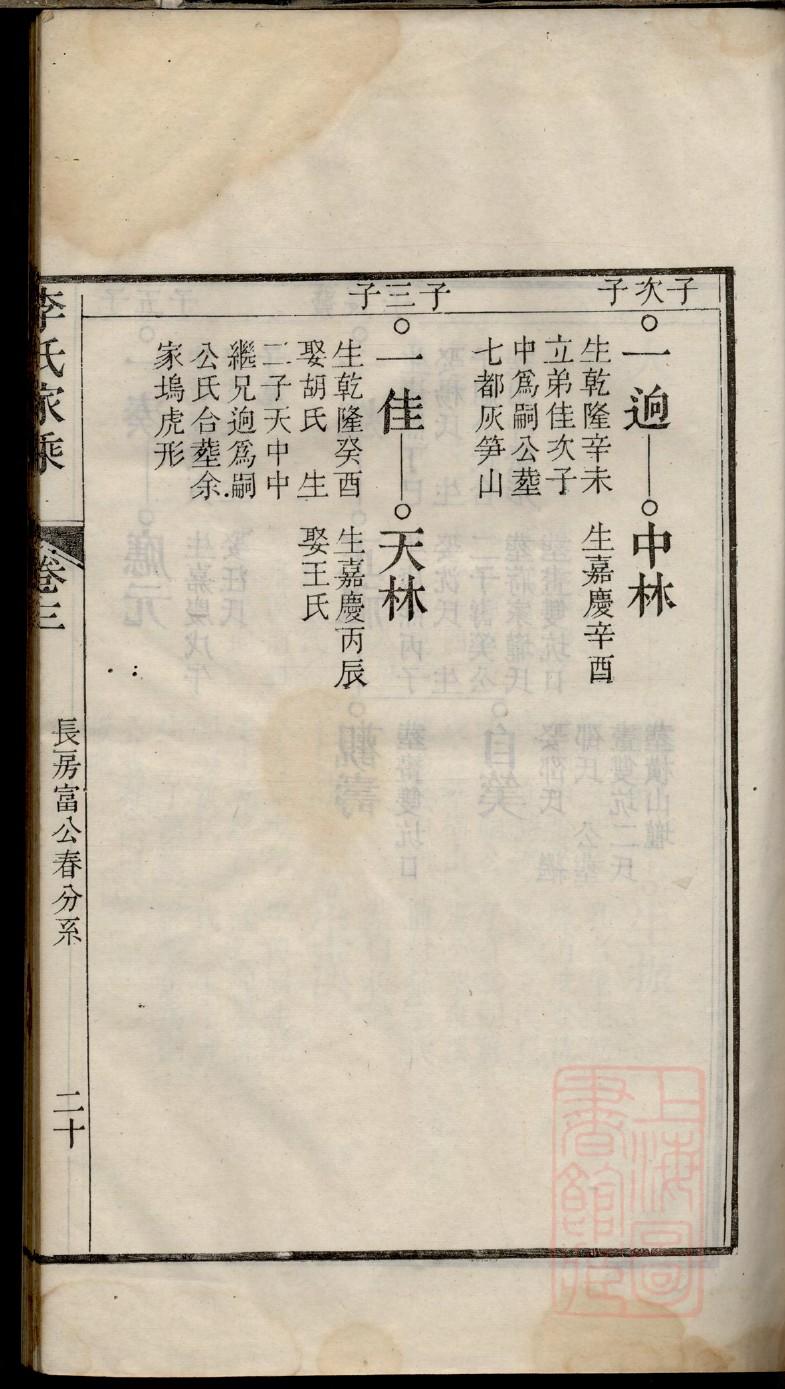 子次子
一逈
生乾隆辛未
立弟佳次子
中爲嗣公葬
七都灰笋山
中林
生嘉慶辛酉
子三子
一佳
生乾隆癸酉
娶胡氏 生
二子天中中
繼兄逈爲嗣
公氏台葬余
家塢虎形
天林
生嘉慶丙辰
娶王氏
李氏家乘
卷三
長房富公春分系
二十
上海圖
書館藏